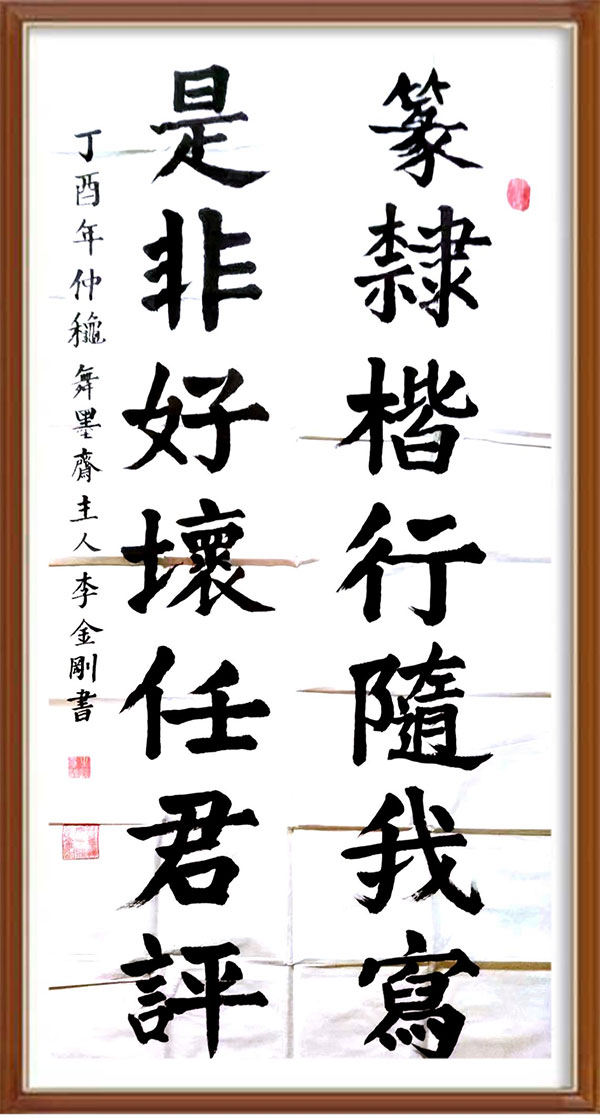 篆隸楷行隨我寫
是非好壞任君評
丁酉年仲龝舞墨齋主人李金剛書